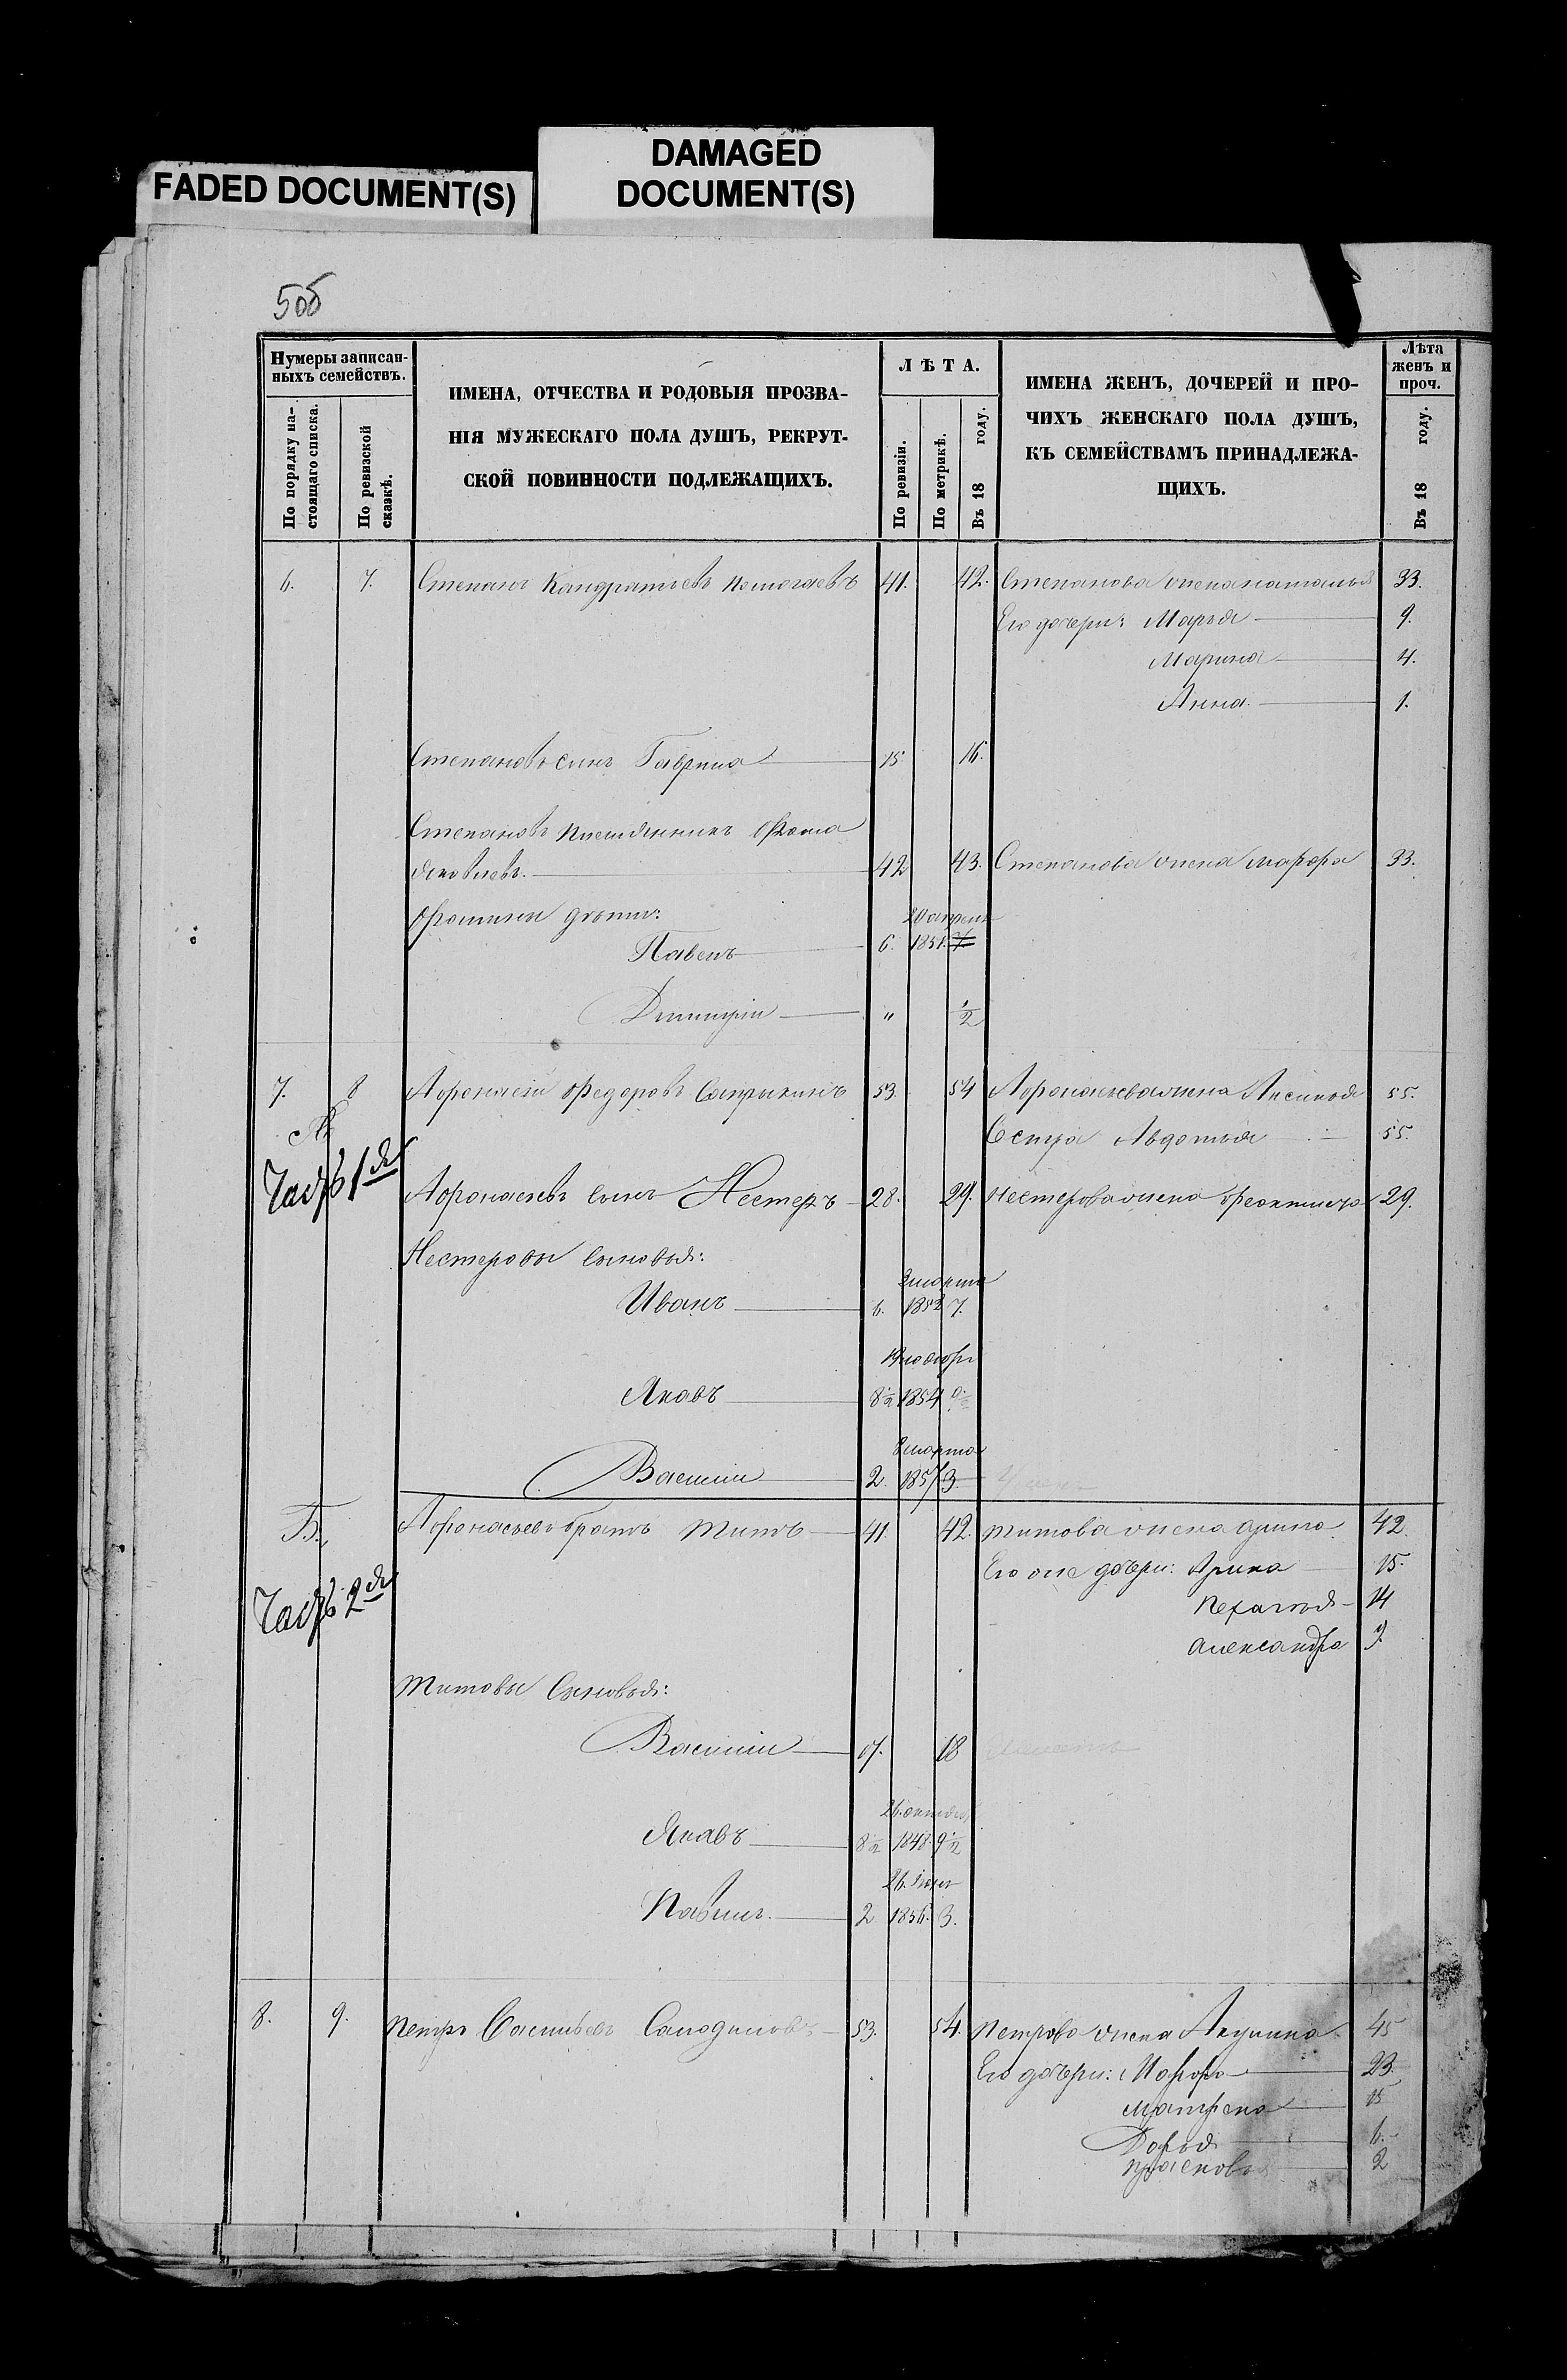 FADED DOCUMENT(S)
DAMAGED
DOCUMENT(S)
5об
Нумеры записан-
ныхъ семействъ.
По порядку на-
стоящаго списка.
По ревизской
сказкѣ.
ИМЕНА, ОТЧЕСТВА И РОДОВЫЯ ПРОЗВА-
НІЯ МУЖЕСКАГО ПОЛА ДУШЪ, РЕКРУТ-
СКОЙ ПОВИННОСТИ ПОДЛЕЖАЩИХЪ.
ЛѢТА.
По ревизіи.
По метрикѣ.
Въ 18 году.
ИМЕНА ЖЕНЪ, ДОЧЕРЕЙ И ПРО-
ЧИХЪ ЖЕНСКАГО ПОЛА ДУШЪ,
КЪ СЕМЕЙСТВАМЪ ПРИНАДЛЕЖА-
ЩИХЪ.
Лѣта
женъ и
проч.
Въ 18 году.
6. 7. Степанъ Кандратьевъ 41. 42. Степанова жена наталья 33.
Его дочери: Марья 9.
Марина 4.
Анна. 1.
Степановъ сынъ Гаврила 15. 16.
Степановъ племянникъ Фома
Яковлевъ. 42 43. Степанова жена марфра 33.
Фомины дѣти: 20 апреля
Павелъ 6. 1851. 7.
Дмитрій " ½
7. 8 Афонасій Федоровъ Сапрыкинъ 53. 54 Афонасьева жена Аксинья 55.
А Сестра Авдотья 55.
Часть 1я Афонасьевъ сынъ Нестеръ 28. 29. Нестерова жена феоктиста 29.
Нестеровы сыновья:
марта
Иванъ 6. 1852 7.
Яковъ 1854
8 марта
Василій 2. 1857 3.
Б. Афонасьевъ братъ Титъ 41. 42. титова жена арина 42.
Его же дочери: Арина 15.
Часть 2я Пелагѣя 14
Александра 9.
Титовы Сыновья:
Василій 17. 18
26. октября
Яковъ 8½ 1848 9½
26.
Павелъ. 2 1856. 3.
8. 9. Петръ Савельевъ Солодиловъ 53. 54. Петрова жена Акулина 45
Его дочери: Марфра 23.
Матрена 15
Дарья 6.
Прасковья 2